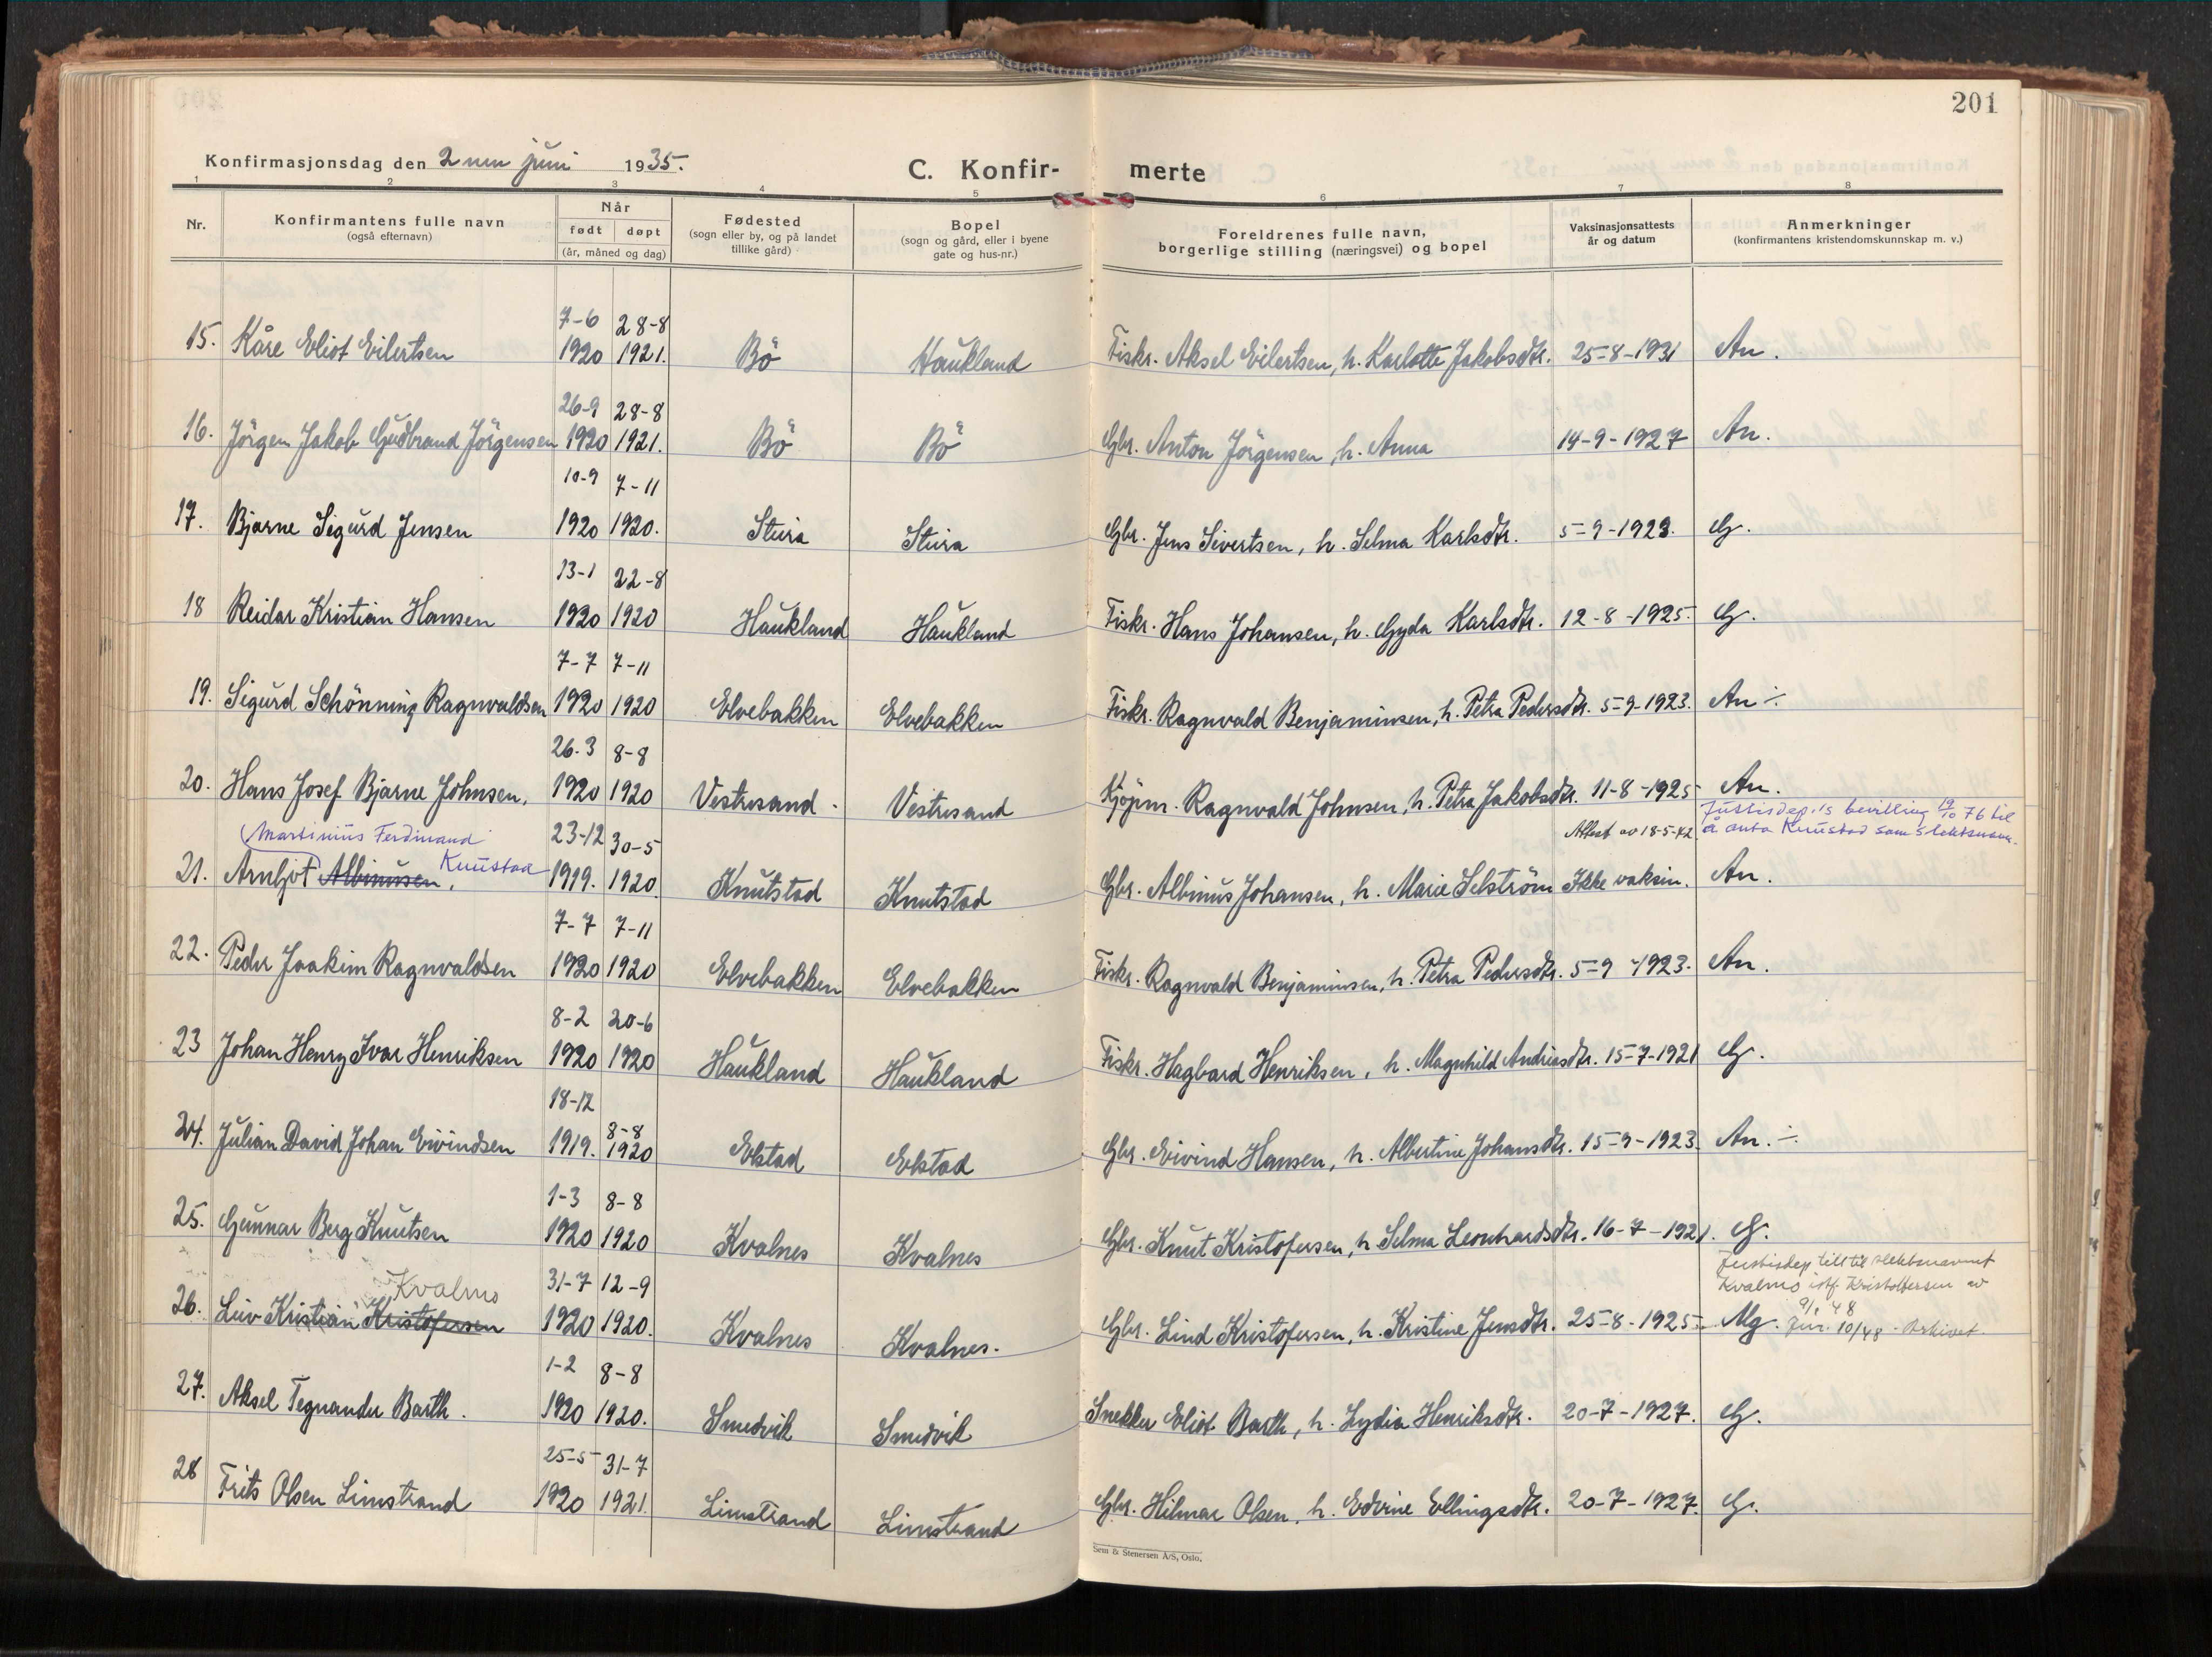 201
Konfirmasjonsdag den 2nen juni 1935.
C. Konfir- merte
1 2 3 4 5 6 7 8
Nr.
Konfirmantens fulle navn
(også efternavn)
Når
født døpt
(år, måned og dag)
Fødested
(sogn eller by, og på landet
tillike gård)
Bopel
(sogn og gård, eller i byene
gate og hus-nr.)
Foreldrenes fulle navn,
borgerlige stilling (næringsvei) og bopel
Vaksinasjonsattests
år og datum
Anmerkninger
(konfirmantens kristendomskunnskap m. v.)
7-6 28-8
15. Kåre Eliot Eilertsen 1920 1921. Bö Haukland Fiskr. Aksel Eilertsen, h. Karlotte Jakobsdtr. 25-8-1931 An.
26-9 28-8
16. Jörgen Jakob Gudbrand Jörgensen 1920 1921. Bö Bö Gbr. Anton Jörgensen, h. Anna 14-9-1927 An.
10-9 7-11
17. Bjarne Sigurd Jensen 1920 1920. Stura Stura Gbr. Jens Sivertsen, h. Selma Karlsdtr. 5-9-1923. G.
13-1 22-8
18 Reidar Kristian Hansen 1920 1920 Haukland Haukland Fiskr. Hans Johansen, h. Gyda Karlsdtr. 12-8-1925. G.
7-7 7-11
19. Sigurd Schönning Ragnvaldsen 1920 1920 Elvebakken Elvebakken Fiskr. Ragnvald Benjaminsen, h. Petra Pedersdtr. 5-9-1923. An ÷
26.3 8-8
20. Hans Josef Bjarne Johnsen, 1920 1920 Vestresand - Vestresand Kjöpm. Ragnvald Johnsen, h. Petra Jakobsdtr. 11-8-1925 An.
Justisdep.'s bevilling 19/10 76 til
Martinius Ferdinand 23-12 30-5 Attest av 18-5-42 å anta Knustad som slektsnavn.
21. Arnljot Albinusen, Knustad 1919. 1920 Knutstad Knutstad Gbr. Albinus Johansen, h. Marie Selström Ikke vaksin. An.
7-7 7-11
22. Peder Joakim Ragnvaldsen 1920 1920 Elvebakken Elvebakken Fiskr. Ragnvald Benjaminsen, h. Petra Pedersdtr. 5-9-1923. An.
8-2 20-6
23 Johan Henry Ivar Henriksen 1920 1920 Haukland Haukland Fiskr. Hagbard Henriksen, h. Magnhild Andreasdtr. 15-7-1921 G.
18-12 8-8
24. Julian David Johan Eivindsen 1919. 1920 Ekstad Ekstad Gbr. Eivind Hansen, h. Albertine Johansdtr. 15-9-1923. An. ÷
1-3 8-8
25. Gunnar Berg Knutsen 1920 1920 Kvalnes Kvalnes Gbr. Knut Kristofersen, h. Selma Leonhardsdtr. 16-7-1921. G.
Justisdep till til slektsnavnet
Kvalnes 31-7 12-9 Kvalnes istf. Kristoffersen av
26. Leiv Kristian Kristofersen 1920 1920. Kvalnes Kvalnes. Gbr. Lind Kristofersen, h. Kristine Jensdtr. 25-8-1925 Mg. 9/1 48 Jnr. 10/48 - Arkivet.
1-2 8-8
27. Aksel Tegnander Barth. 1920 1920. Smedvik Smedvik Snekker Eliot Barth, h. Lydia Henriksdtr. 20-7-1927. G.
25-5 31-7
28 Frits Olsen Limstrand 1920 1921. Limstrand Limstrand Gbr. Hilmar Olsen, h. Edvine Ellingsdtr. 20-7-1927. G.
Sem & Stenersen A/S, Oslo.